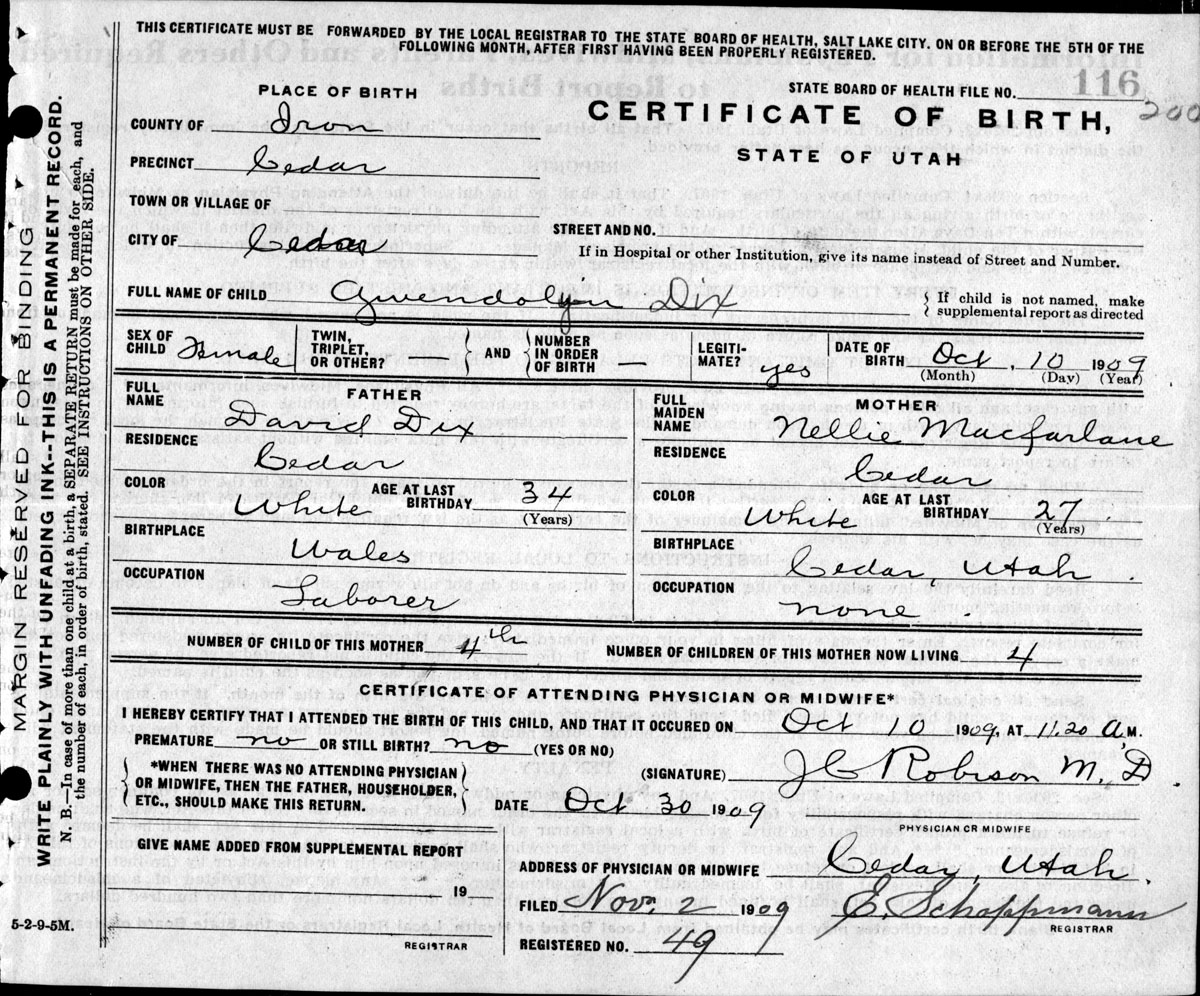 THIS CERTIFICATE MUST BE FORWARDED BY THE LOCAL REGISTRAR TO THE STATE BOARD OF HEALTH, SALT LAKE CITY. ON OR BEFORE THE 5TH OF THE
FOLLOWING MONTH, AFTER FIRST HAVING BEEN PROPERLY REGISTERED.
STATE BOARD OF HEALTH FILE NO. 116
200
PLACE OF BIRTH
CERTIFICATE OF BIRTH,
STATE OF UTAH
COUNTY OF Iron
PRECINCT Cedar
TOWN OR VILLAGE OF
CITY OF Cedar
STREET AND NO.
If in Hospital or other Institution, give its name instead of Street and Number.
FULL NAME OF CHILD Gwendolyn Dix { If child is not named, make
supplemental report as directed
SEX OF CHILD Female TWIN, TRIPLET, OR OTHER? } AND { NUMBER IN ORDER OF BIRTH — LEGITI-MATE? yes DATE OF BIRTH Oct, 10 1909
(Month) (Day) (Year)
FATHER
FULL NAME David Dix
RESIDENCE Cedar
COLOR White AGE AT LAST BIRTHDAY 34
(Years)
BIRTHPLACE Wales
OCCUPATION Laborer
MOTHER
FULL MAIDEN NAME Nellie Macfarlane
RESIDENCE Cedar
COLOR White AGE AT LAST BIRTHDAY 27
(Years)
BIRTHPLACE Cedar, Utah.
OCCUPATION none
NUMBER OF CHILD OF THIS MOTHER 4th NUMBER OF CHILDREN OF THIS MOTHER NOW LIVING 4
CERTIFICATE OF ATTENDING PHYSICIAN OR MIDWIFE*
I HEREBY CERTIFY THAT I ATTENDED THE BIRTH OF THIS CHILD, AND THAT IT OCCURED ON Oct 10 1909, AT 11.20 A.M.
PREMATURE no OR STILL BIRTH? no (YES OR NO)
{ *WHEN THERE WAS NO ATTENDING PHYSICIAN
OR MIDWIFE, THEN THE FATHER, HOUSEHOLDER,
ETC., SHOULD MAKE THIS RETURN. }
(SIGNATURE) J C Robison M. D
DATE Oct 30 1909
PHYSICIAN OR MIDWIFE
GIVE NAME ADDED FROM SUPPLEMENTAL REPORT
19
REGISTRAR
ADDRESS OF PHYSICIAN OR MIDWIFE Cedar, Utah.
FILED Nov. 2 1909 E. Schoppmann
REGISTRAR
REGISTERED NO. 49
5-2-9-5M.
MARGIN RESERVED FOR BINDING
WRITE PLAINLY WITH UNFADING INK--THIS IS A PERMANENT RECORD.
N. B.—In case of more than one child at a birth, SEPARATE RETURN must be made for each, and
the number of each, in order of birth, stated. SEE INSTRUCTIONS ON OTHER SIDE.